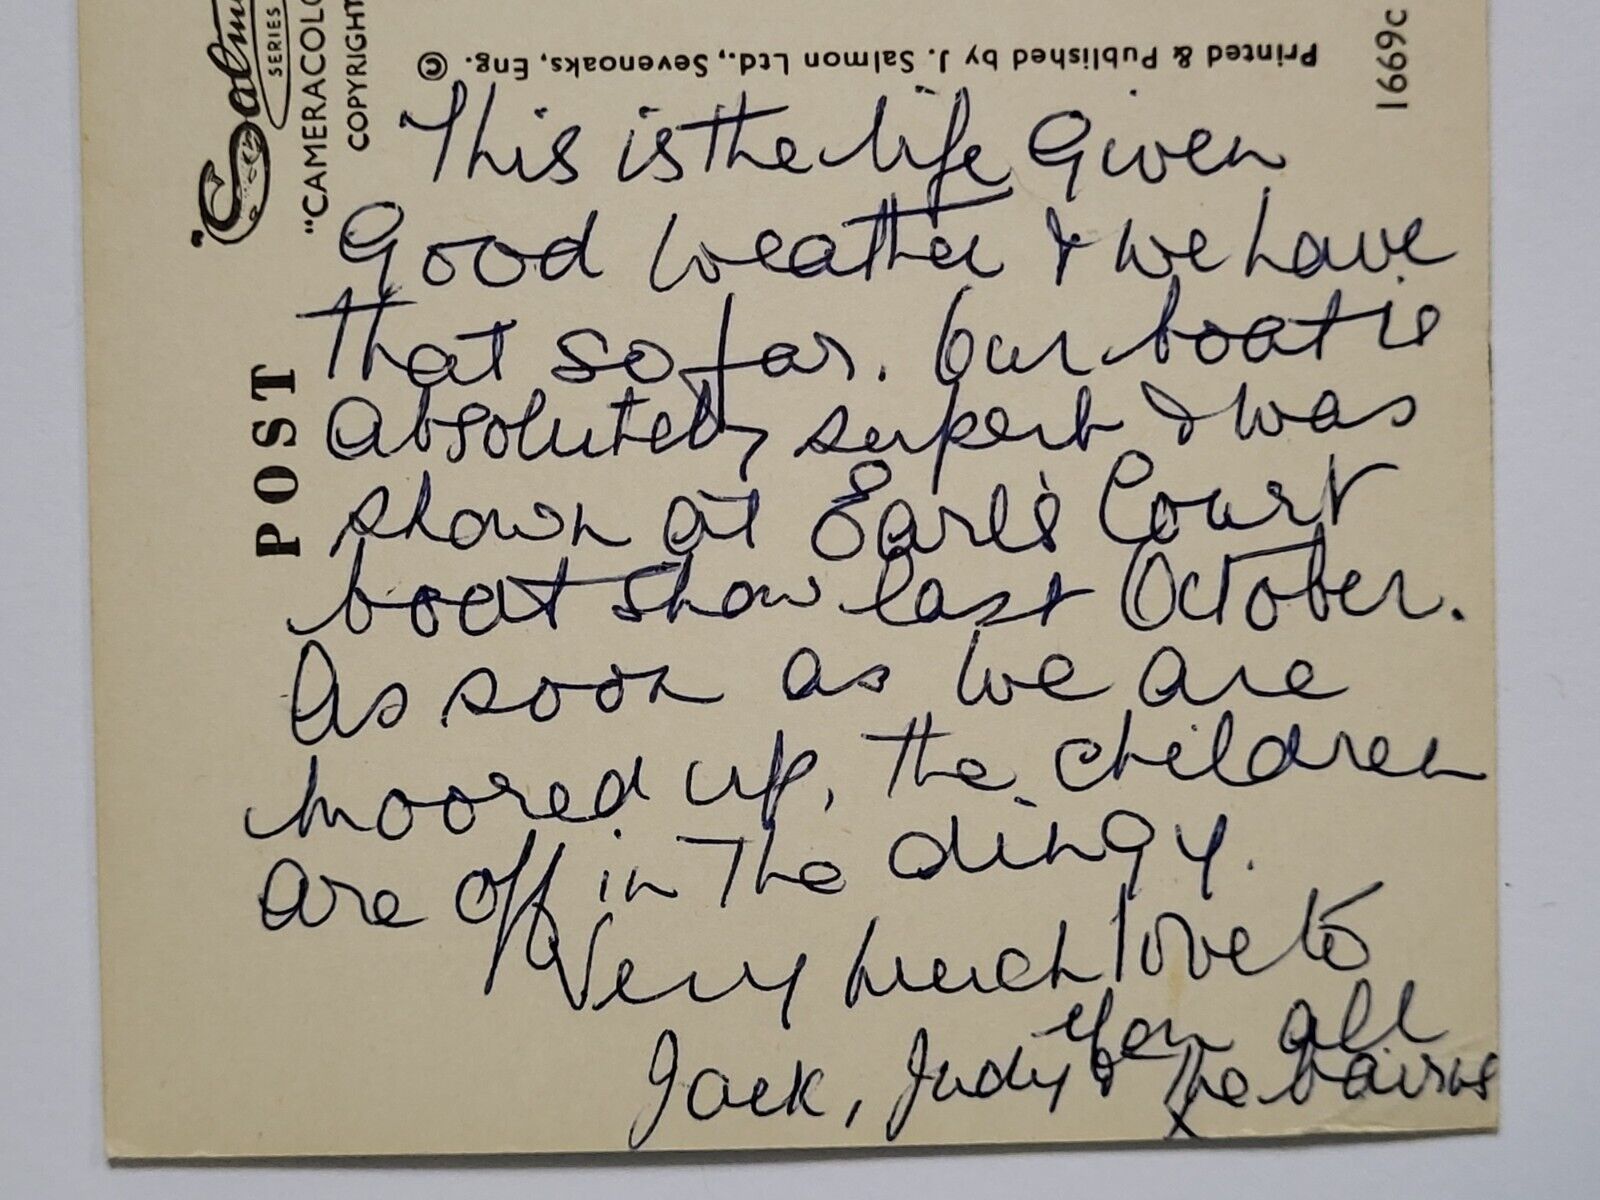 "Salm
SERIES
"CAMERACOLO
COPYRIGHT
Printed & Published by J. Salmon Ltd., Sevenoaks, Eng. ©
1669c
POST
This is the life Given
Good weather & we have
that so far. Our boat is
absolutely superb & was
shown at Earl's Court
boat show last October.
As soon as we are
moored up, the children
are off in the dingy.
Very much love to
you all
Jack, Judy & the bairns